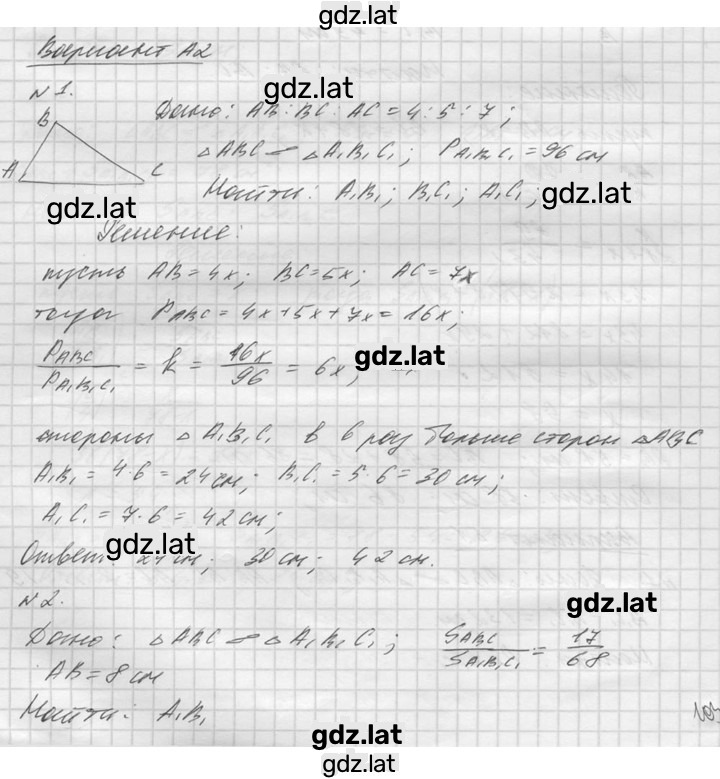 gdz.lat
Вариант А2
№1.
gdz.lat
B
A
C
Дано: AB : BC : AC = 4 : 5 : 7;
△ABC ∽ △A₁B₁C₁; P A₁B₁C₁ = 96 см
Найти: A₁B₁; B₁C₁; A₁C₁; gdz.lat
gdz.lat
Решение:
пусть AB = 4x; BC = 5x; AC = 7x
тогда P ABC = 4x + 5x + 7x = 16x;
P ABC / P A₁B₁C₁ = k = 16x / 96 = 6x; gdz.lat
стороны △ A₁B₁C₁ в 6 раз больше сторон △ABC
A₁B₁ = 4·6 = 24 см; B₁C₁ = 5·6 = 30 см;
A₁C₁ = 7·6 = 42 см;
gdz.lat
Ответ: 24 см; 30 см; 42 см.
№2.
gdz.lat
Дано: △ABC ∽ △A₁B₁C₁; S ABC / S A₁B₁C₁ = 17 / 68
AB = 8 см
Найти: A₁B₁
gdz.lat
gdz.lat